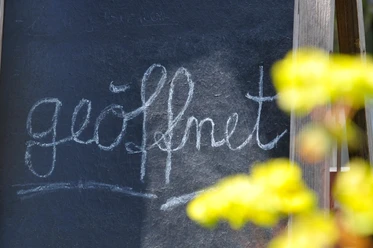 geöffnet